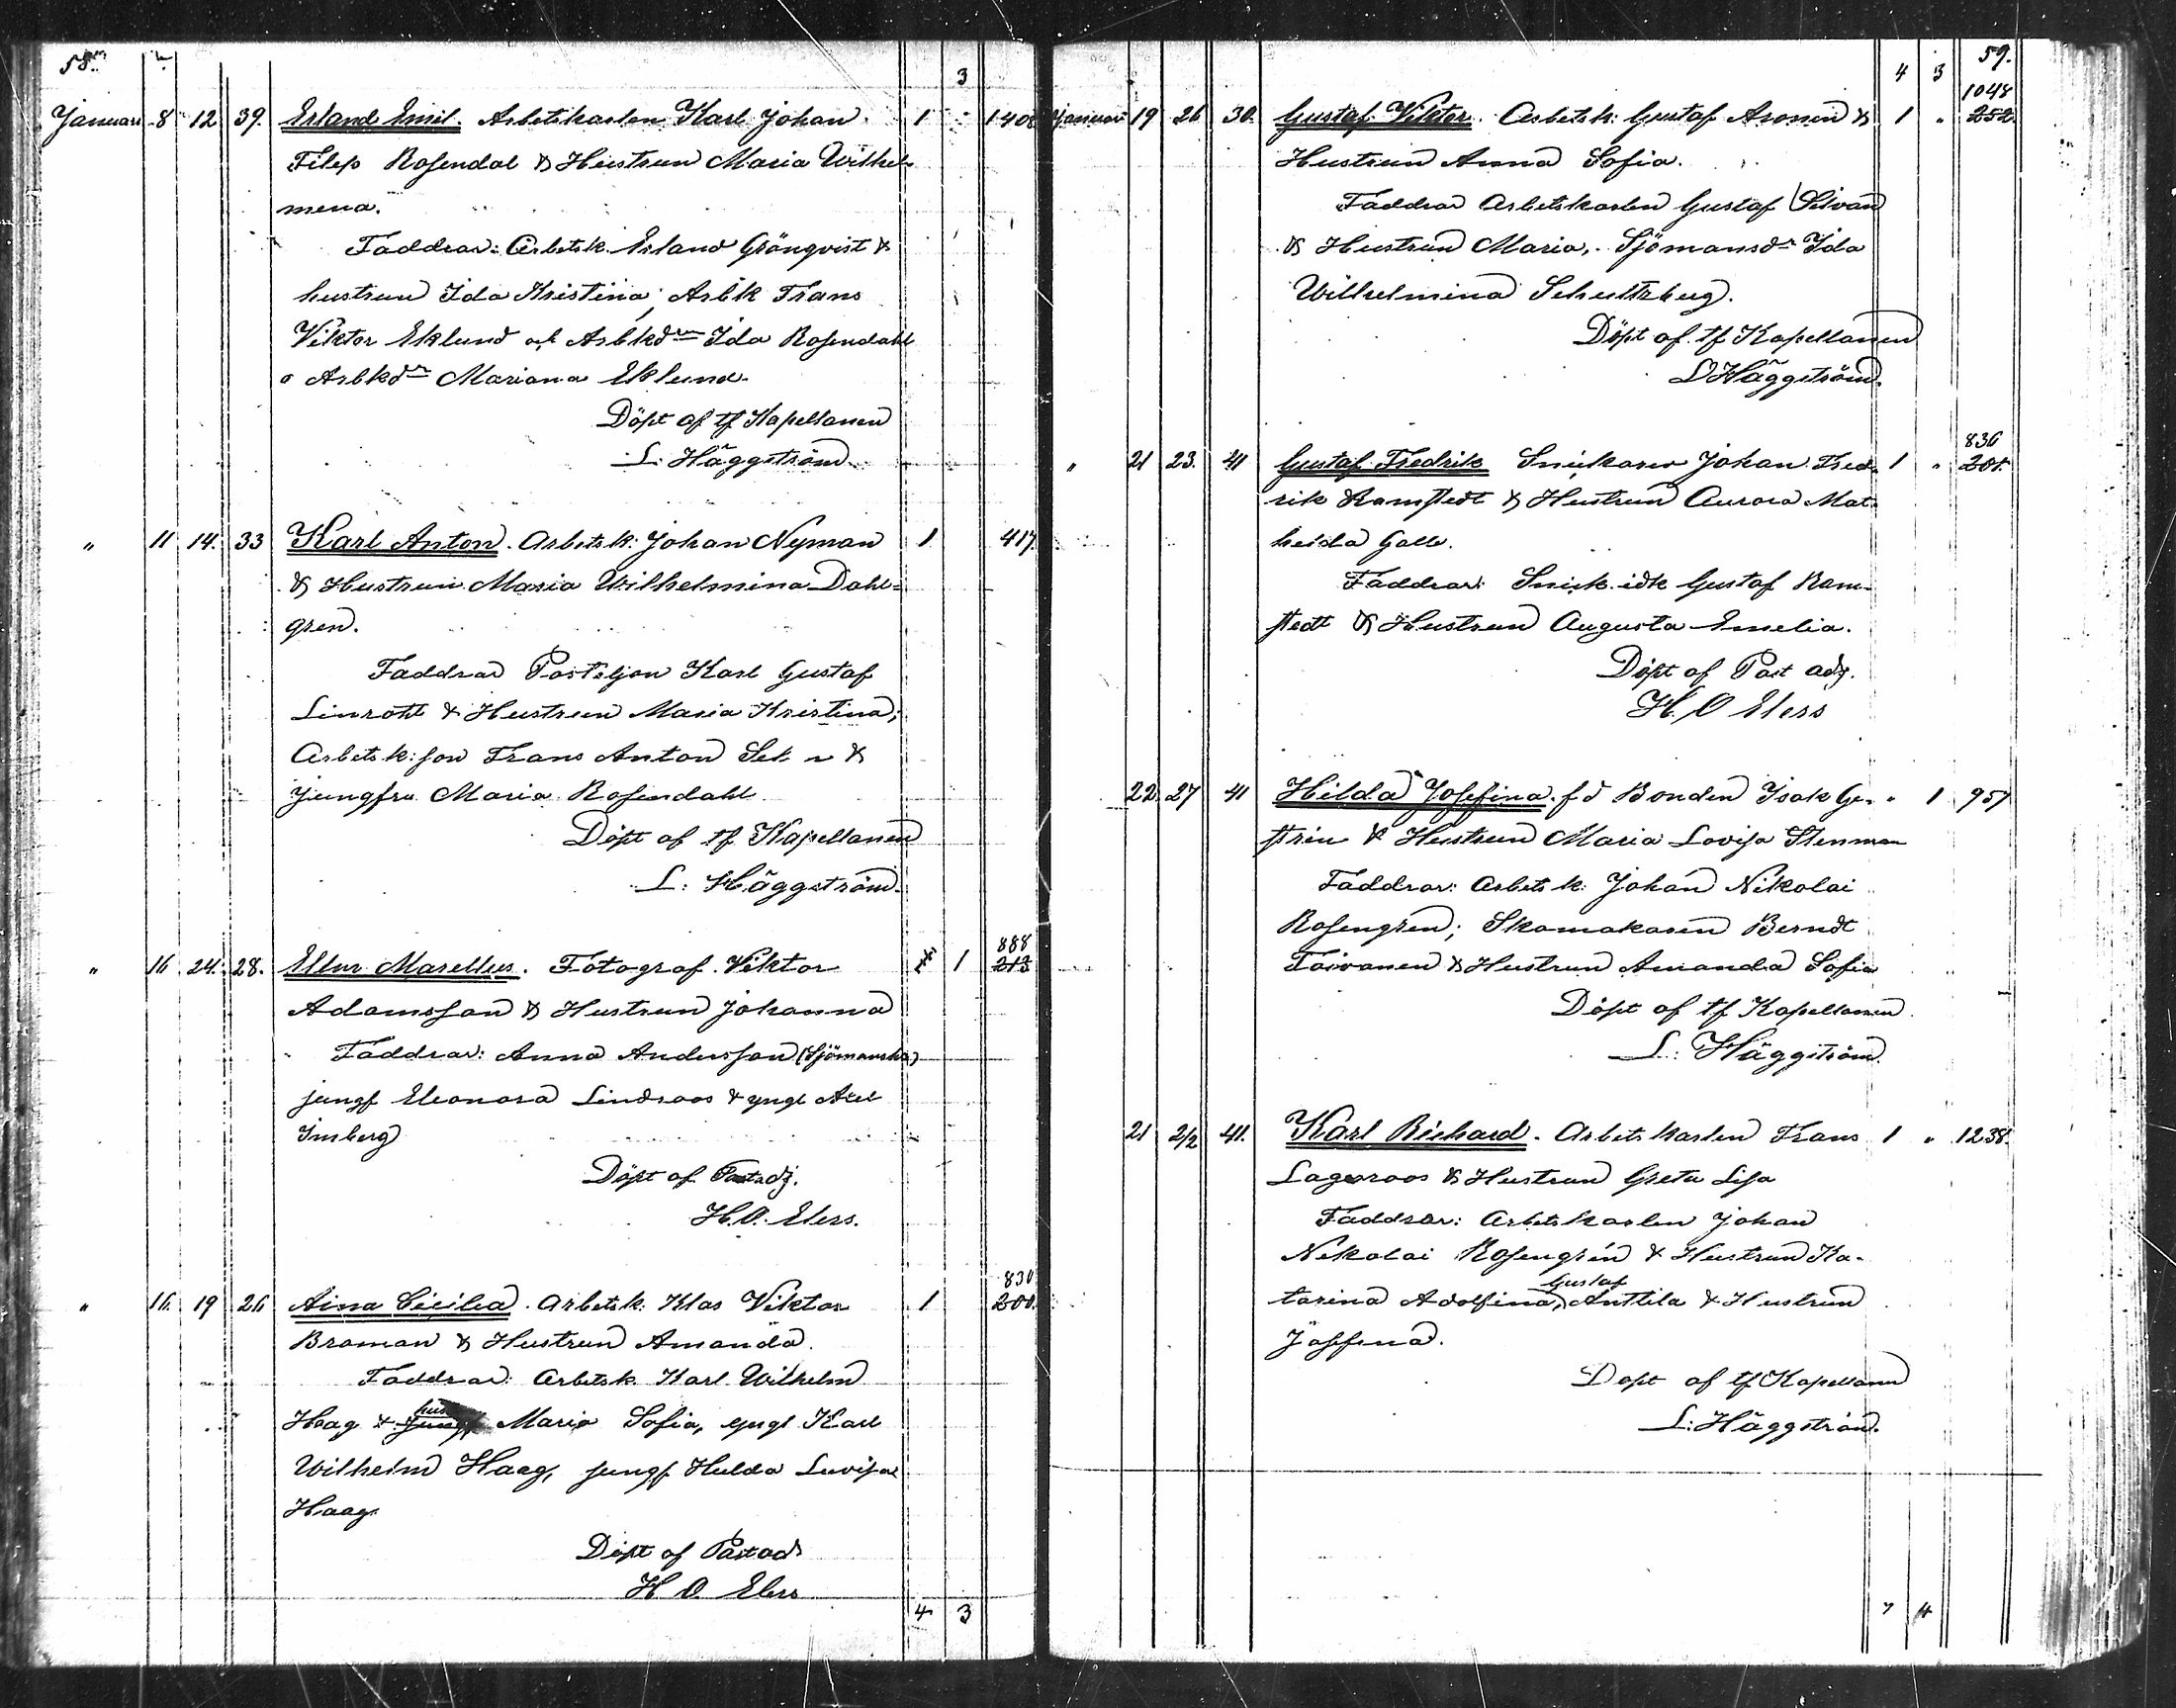 58.
3
Januari 8 12 39. Erland Emil. Arbetskarlen Karl Johan 1 1408
Filip Rosendal & Hustrun Maria Wilhel-
mena.
Faddrar: Arbetsk. Erland Grönqvist &
hustrun Ida Kristina, Arbk Frans
Viktor Eklund och Arbkdrn Ida Rosendahl
o Arbkdr Mariana Eklund.
Döpt af tf Kapellanen
L. Häggström
" 11 14. 33 Karl Anton. Arbetsk: Johan Nyman 1 417.
& Hustrun Maria Wilhelmina Dahl=
gren.
Faddrar Postiljon Karl Gustaf
Linroth & Hustrun Maria Kristina;
Arbetsk: son Frans Anton &
jungfru Maria Rosendahl
Döpt af tf Kapellanen
L: Häggström.
888
" 16 24. 28. Marellus. Fotograf Viktor 1 213
Adamsson & Hustrun Johanna
Faddrar: Anna Andersson (Sjömansha)
jungf Eleonora Lindroos & yngl Axel
Imberg
Döpt af Past adj.
H. O. Elers.
830
" 16. 19 26 Aina Cicilia. Arbetsk. Klas Viktor 1 200.
Broman & Hustrun Amanda.
Faddrar: Arbetsk. Karl Wilhelm
hus
Haag & Jungf Maria Sofia, yngl Karl
Wilhelm Haag, jungf Hulda Lovisa
Haag.
Döpt af Past adj
H O. Elers
4 3
59.
4 3
1048
Januari 19 26 30. Gustaf Viktor. Arbetsk: Gustaf Aronen & 1 " 252
Hustrun Anna Sofia.
Faddrar Arbetskarlen Gustaf Silvan
& Hustrun Maria, Sjömansdr Ida
Wilhelmina Schultzberg.
Döpt af tf Kapellanen
L Häggström.
836
" 21 23. 41 Gustaf Fredrik Snickaren Johan Fred- 1 " 201.
rik Ramstedt & Hustrun Aurora Mat-
heida Galle.
Faddrar: Snick. idk Gustaf Ram-
stedt & Hustrun Augusta Emelia.
Döpt af Past adj.
H. O Elers
22 27 41 Hilda Josefina. fd Bonden Isak Ge- " 1 957
strin & Hustrun Maria Lovisa Stenman
Faddrar: Arbetsk: Johan Nikolai
Rosengren; Skomakaren Berndt
Toivonen & Hustrun Amanda Sofia
Döpt af tf Kapellanen
L: Häggström.
21 2/2 41. Karl Richard. Arbetskarlen Frans 1 " 1238.
Lagerroos & Hustrun Greta Lisa
Faddrar: Arbetskarlen Johan
Nikolai Rosengrén & Hustrun Ka-
Gustaf
tarina Adolfina, Anttila & Hustrun
Josefina.
Döpt af tf Kapellanen
L: Häggström.
7 4